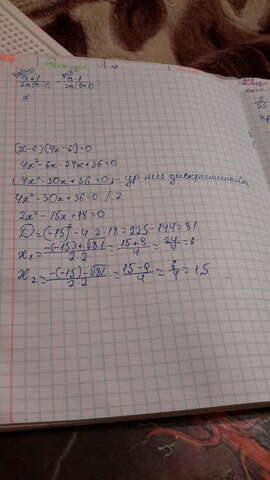 a+1
2a(a-1)
a-1
2a(a+1)
x
(x-6)(4x-6)=0
4x²-6x-24x+36=0
(4x²-30x+36=0) - ур-ние дискриминанта
4x²-30x+36=0 /2
2x²-15x+18=0
D=(-15)²-4·2·18=225-144=81
x₁=-(-15)+√81/2·2=15+9/4=24/4=6
x₂=-(-15)-√81/2·2=15-9/4=6/4=1,5